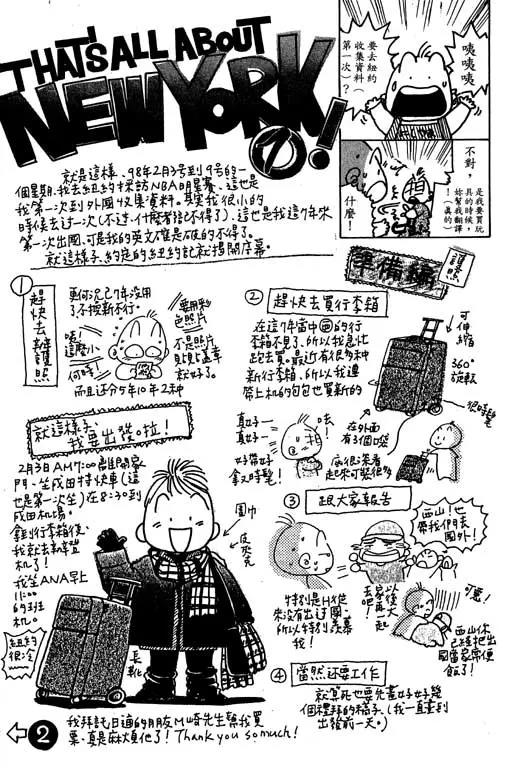 THAT'S ALL ABOUT
NEW YORK ①!
咦咦咦
要去紐約
收集資料(
第一次)?
不對,
是我要買玩
具的時候,
妳幫我翻譯
!(真的)
什麼!
就是這樣、98年2月3号到9号的一
個星期、我去紐約採訪NBA明星賽、這也是
我第一次到外國收集資料。其實我很小的
時候去过一次(不过、什麼都記不得了)、這也是我這7年來
第一次出國、可是我的英文
就這樣子、約
的紐約記就揭開序幕。
準備編
①
趕快去辦護照
更何況已7年沒用
了不換新不行。
要用彩
色照片
咦!
這麼小
何時
不是照片
只見了蓋章
就好了。
而且还分5年10年2种
②
趕快去買行李箱
在這7年當中
的行
李箱不見了、所以我急忙
跑去買。最近有很多种
新行李箱、所以我連
帶上机的包包也買新的
可伸縮
360°
旋轉
很時髦
真好一
真好一
咦!
在外面
有3個喔
好帶好
拿又時髦!
底很深看
起來可裝很多
就這樣子、
我要出發啦!
2月3日AM7:00離開家
門、坐成田特快車(這
也是第一次坐)在8:30到
成田机場。
拿到行李箱後、
我就去辦登
机了!
我坐ANA早上
11:00
的班
机。
紐約
很冷
圍巾
皮夾克
長靴
③
跟大家報告
西山!也
帶我們去
國外!
特別是H他
來沒有出过國、
所以特別羨慕
我!
以後
再大
去
吧!
起
可惡!
西山你
已經把出
國當家常便
飯了!
④
當然还要工作
就算死也要先畫好好幾
個禮拜的稿子。(我一直畫到
出發前一天。)
2
我拜託日通的朋友M崎先生幫我買
票、真是麻煩他了!Thank you so much!